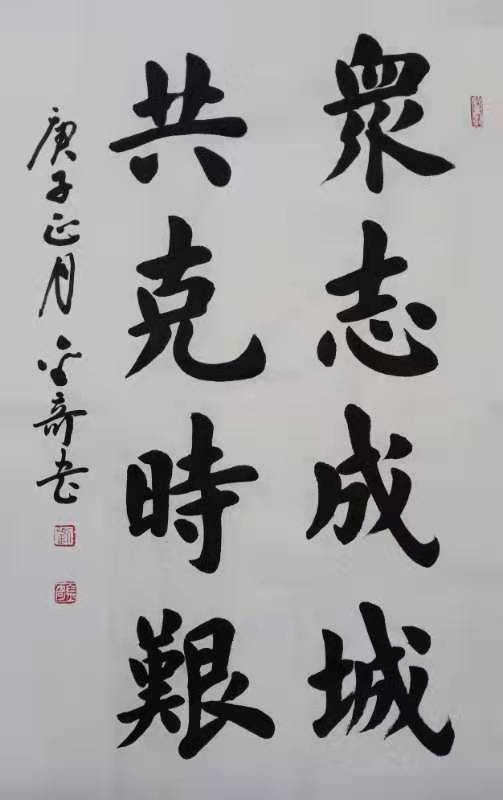 衆志成城
共克時艱
庚子正月金奇书